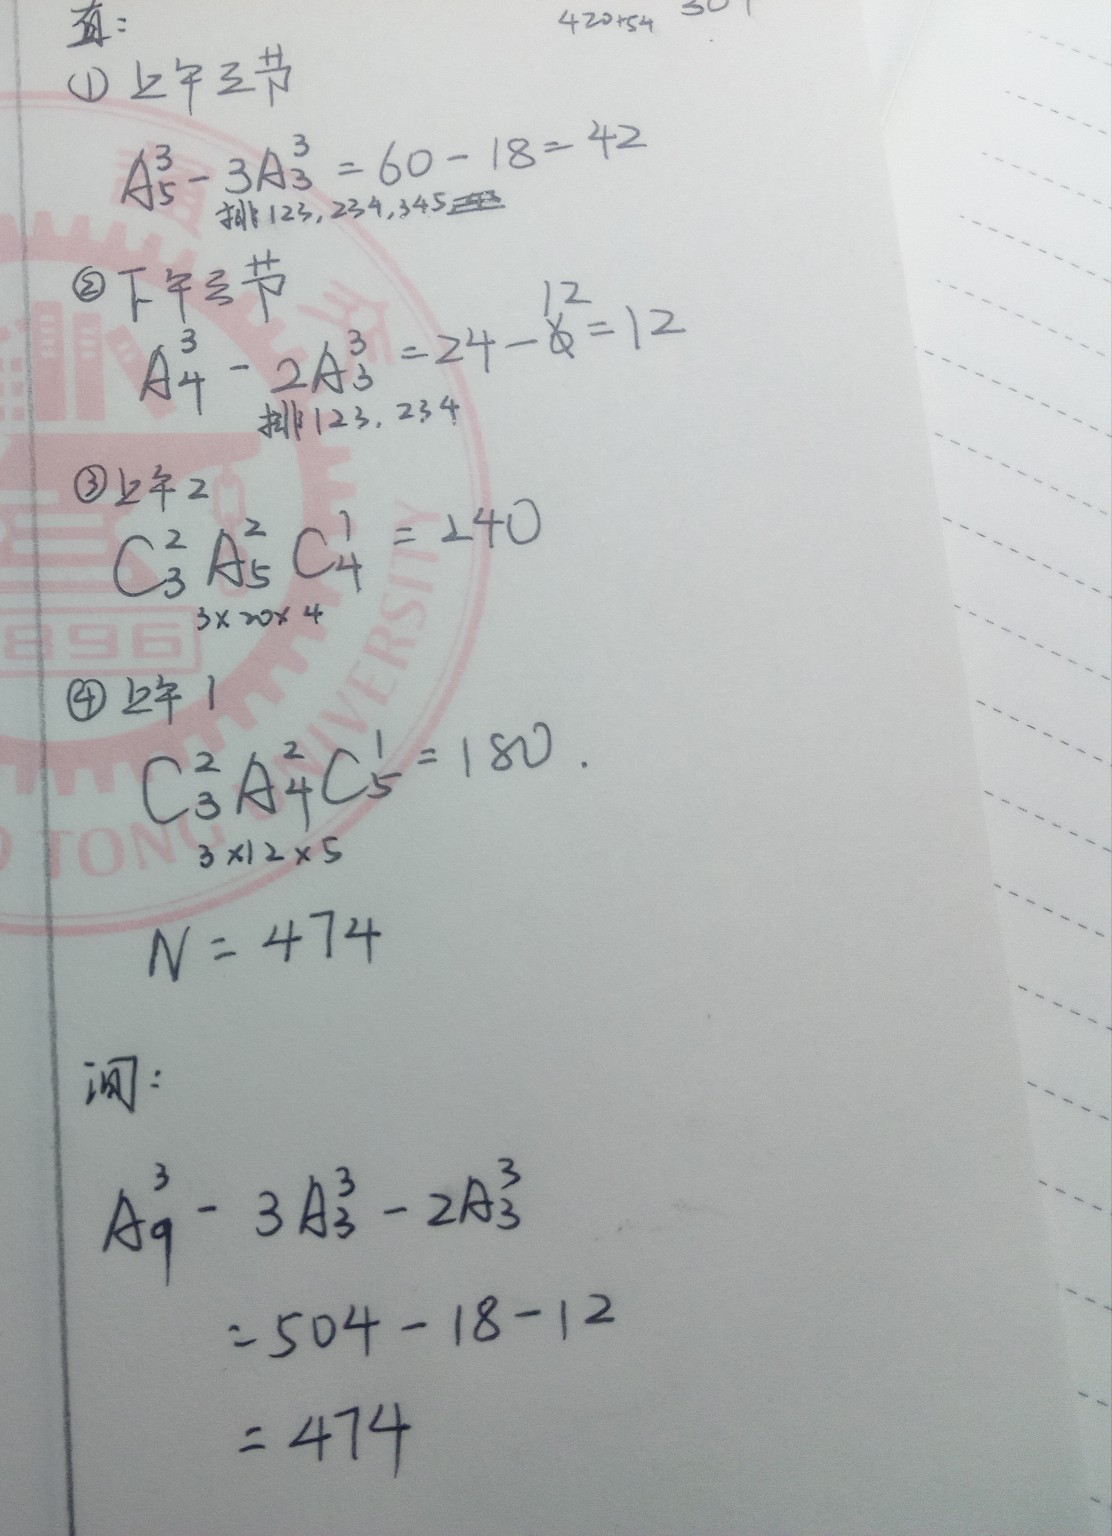 420+54
直:
① 上午三节
A₅³ - 3A₃³ = 60 - 18 = 42
排123, 234, 345
② 下午三节
12
A₄³ - 2A₃³ = 24 - 6 = 12
排123, 234
③ 上午2
C₃² A₅² C₄¹ = 240
3×20×4
896
④ 上午1
C₃² A₄² C₅¹ = 180.
3×12×5
TONG UNIVERSITY
N = 474
间:
A₉³ - 3A₃³ - 2A₃³
= 504 - 18 - 12
= 474